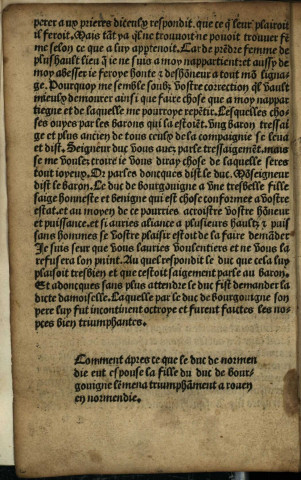 perer a uy prieres diceuly respondit. que ce q̄ leur plairoit
il feroit. Mais tāt ya q̄l ne trouuoit ne pouoit trouuer fē
me selon ce que a luy apptenoit. Car de prēdre femme de
plushault lieu q̄ ie ne suis a moy nappartient: et aussy de
moy abesser ie feroye honte ⁊ deshōneur a tout mō ligna-
ge. Pourquoy me semble saulz vostre correction q̄l vault
mieulx demourer ainsi que faire chose que a moy nappar
tiegne et de laquelle me pourroye repētir. Lesquelles cho-
ses ouyes par les barons qui la estoiēt. Ung baron tressai
ge et plus ancien de tous ceulx de la compaignie se leua
et dist. Seigneur duc vous auez parle tressaigemēt. mais
se me voulez croire ie vous diray chose de laquelle seres
tout ioyeux. Or parles doncques dist le duc. Mōseigneur
dist le baron. Le duc de bourgouigne a vne tresbelle fille
saige honneste et benigne qui est chose conformee a vostre
estat. et au moyen de ce pourries acroistre vostre hōneur
et puissance. et si auries aliance a plusieurs haultz ⁊ puis
sans hommes se vostre plaisir estoit de la faire demāder
Je suis seur que vous lauries voulentiers et ne vous la
refusera son point. Au quel respondit le duc que cela luy
plaisoit tresbien et que cestoit saigement parle au baron.
Et adoncques sans plus attendre le duc fist demander la
dicte damoiselle. Laquelle par le duc de bourgouigne son
pere luy fut incontinent octroye et furent faictes les no-
pces bien triumphantes.
Comment apres ce que le duc de normen
die eut espouse la fille du duc de bour-
gouigne lēmena triumphāment a rouen
en normendie.